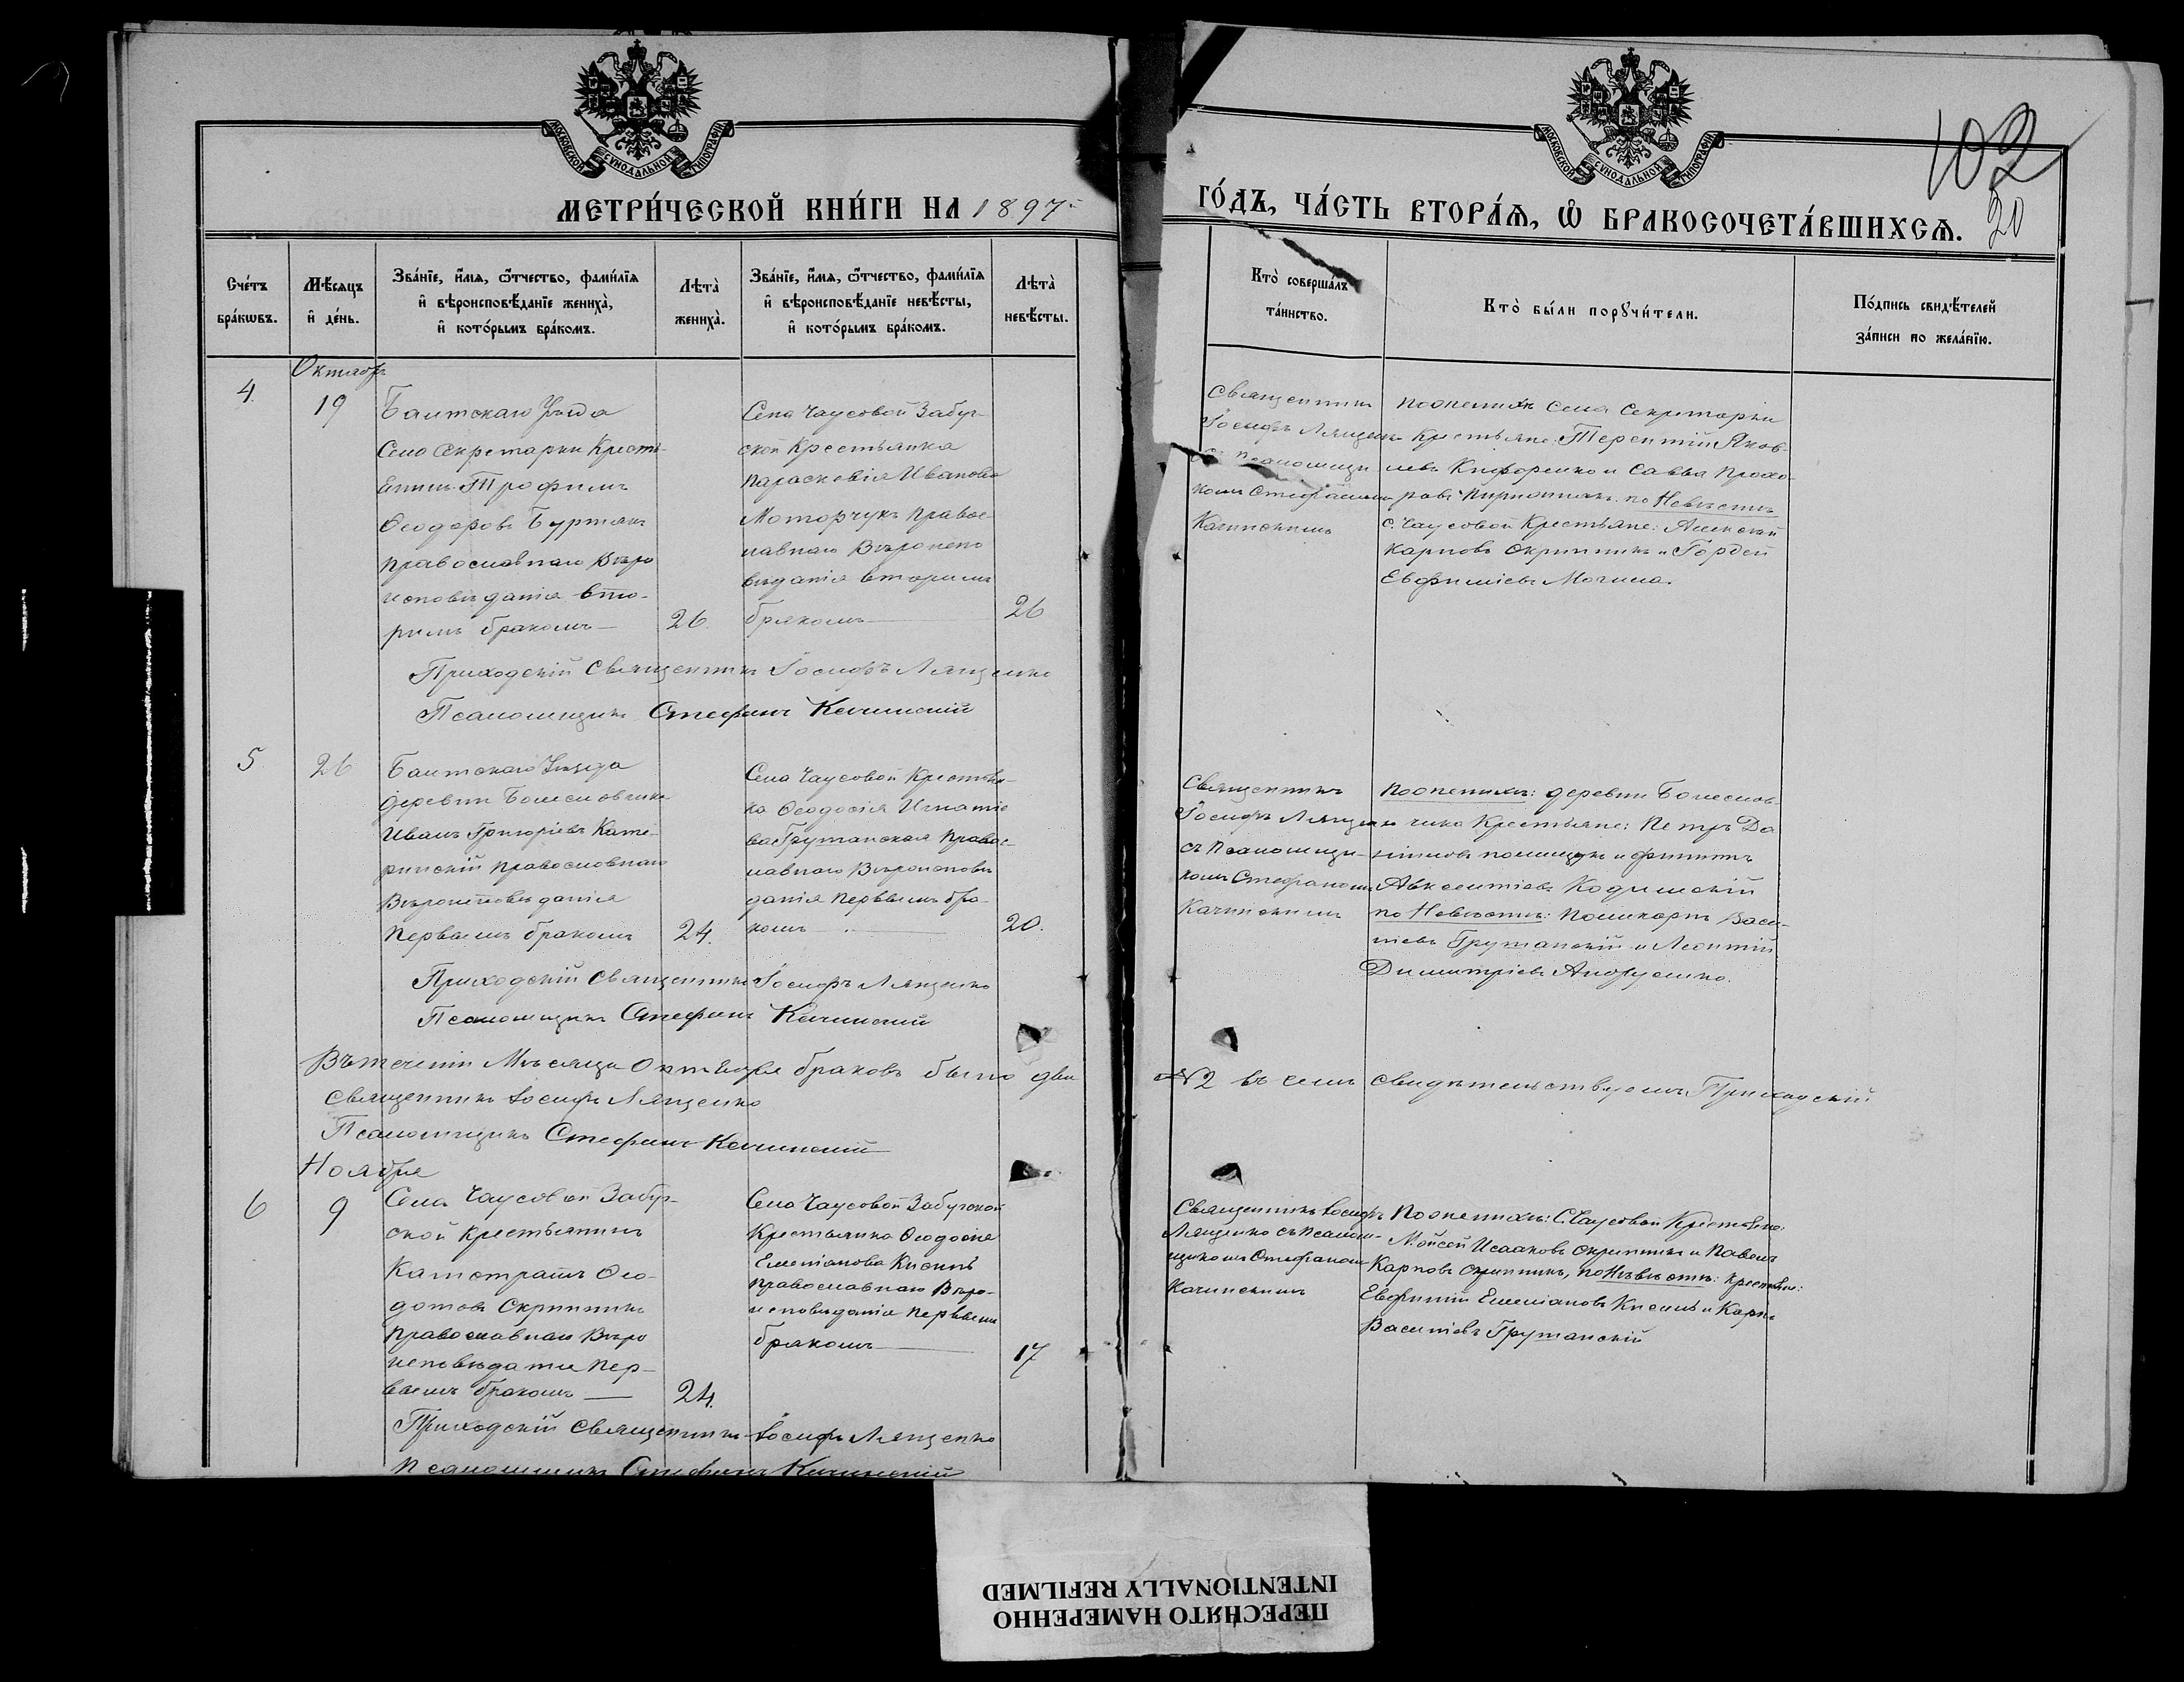 МЕТРИ́ЧЕСКОЙ КНИ́ГИ НА 1897
ГО́ДЪ, ЧА́СТЬ ВТОРА́Ѧ, Ѡ҆ БРАКОСОЧЕТА́ВШИХСѦ.
102
20
МОСКОВСКОЙ СѴНОДАЛЬНОЙ ТИПОГРАФІИ
МОСКОВСКОЙ СѴНОДАЛЬНОЙ ТИПОГРАФІИ
Сче́тъ
бра́кѡвъ.
Мѣ́сѧцъ
и҆ де́нь.
Зва́нїе, и҆́мѧ, ѻ҆́тчество, фами́лїѧ
и҆ вѣроисповѣ́данїе жениха̀,
и҆ кото́рымъ бра́комъ.
Лѣта̀
жениха̀.
Зва́нїе, и҆́мѧ, ѻ҆́тчество, фами́лїѧ
и҆ вѣроисповѣ́данїе невѣ́сты,
и҆ кото́рымъ бра́комъ.
Лѣта̀
невѣ́сты.
Кто̀ соверша́лъ
та́инство.
Кто̀ бы́ли порꙋчи́тели.
По́дпись свидѣ́телей
за́писи по жела́нїю.
Октябрь
4.
19
Балтскаго Уѣзда
Села Секретарки Кресть-
янинъ Трофимъ
Ѳеодоровъ Буртякъ
православнаго Вѣро
исповѣданія вто-
римъ бракомъ —
26.
Села Чаусовой Забуг-
ской Крестьянка
Парасковія Иванова
Моторчукъ Правос-
лавнаго Вѣроиспо
вѣданія вторимъ
бракомъ —
26
Священникъ
Іосифъ Лященко
съ Псаломщи
комъ Стефаномъ
Качинскимъ
По женихѣ Села Секретарки
Крестьяне: Терентій Яков-
левъ Кифоренко и Савва Прохо-
ровъ по Невѣстѣ
с. Чаусовой Крестьяне: Алексѣй
Карповъ Скрипникъ и Гордей
Евфиміевъ Могила.
Приходскій Священникъ Іосифъ Лященко
Псаломщикъ Стефанъ Качинскій
5
26
Балтскаго Уѣзда
деревни Болесловчика
Иванъ Григоріевъ Кате-
ринскій Православнаго
Вѣроисповѣданія
Первымъ бракомъ
24.
Села Чаусовой Крестьян-
ка Ѳеодосія Игнатіе
ва Грушанская Правос-
лавнаго Вѣроисповѣ
данія Первымъ бра-
комъ —
20.
Священникъ
Іосифъ Лященко
съ Псаломщи-
комъ Стефаномъ
Качинскимъ
По женихѣ: деревни Болеслов-
чика Крестьяне: Петръ Да
ніиловъ Полищукъ и Филиппъ
Авксентіевъ Кодимскій
по Невѣстѣ: Поликарпъ Васи-
ліевъ Грушанскій и Леонтій
Димитріевъ Андрусенко.
Приходскій Священникъ Іосифъ Лященко
Псаломщикъ Стефанъ Качинскій
Въ теченіи Мѣсяца Октября браковъ было два
№ 2 въ чемъ свидѣтельствуемъ Приходскій
Священникъ Іосифъ Лященко
Псаломщикъ Стефанъ Качинскій
Ноября
6
9
Села Чаусовой Забуг-
ской Крестьянинъ
Калистратъ Ѳео-
дотовъ Скрипникъ
Православнаго Вѣро
исповѣданія Пер-
вымъ бракомъ —
24.
Села Чаусовой Забугской
Крестьянка Ѳеодосія
Емеліанова Кисиль
Православнаго Вѣро-
исповѣданія Первымъ
бракомъ —
17
Священникъ Іосифъ
Лященко съ Псалом-
щикомъ Стефаномъ
Качинскимъ
По женихѣ: С. Чаусовой Крестьяне:
Мойсей Исааковъ Скрипникъ и Павелъ
Карповъ Скрипникъ, по Невѣстѣ: Крестьяне:
Евфимій Емеліановъ Кисиль и Карпъ
Василіевъ Грушанскій
Приходскій Священникъ Іосифъ Лященко
Псаломщикъ Стефанъ Качинскій
ПЕРЕСНЯТО НАМЕРЕННО
INTENTIONALLY REFILMED